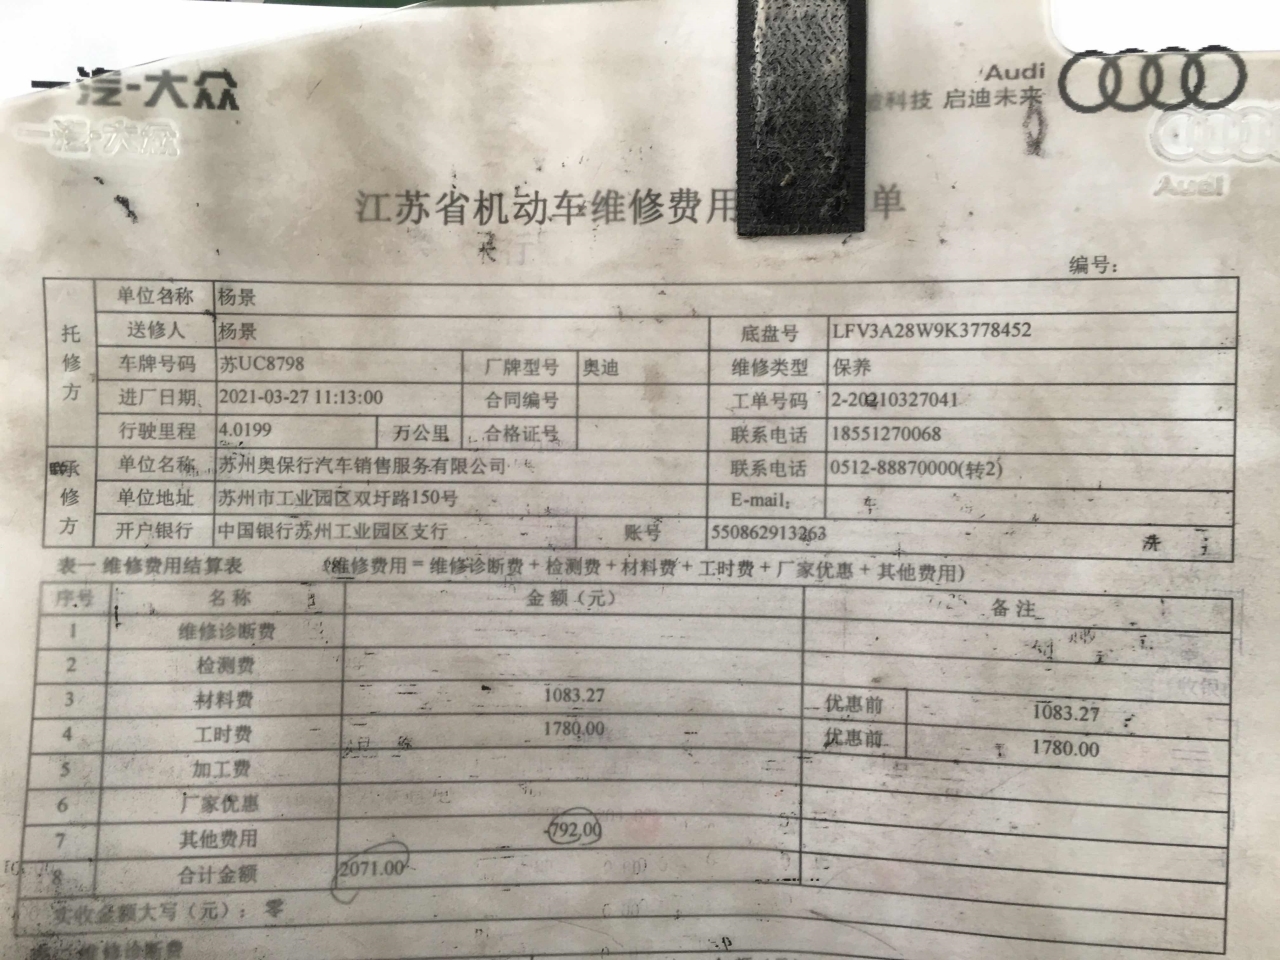 一汽-大众
Audi
科技 启迪未来
一汽·大众
Audi
江苏省机动车维修费用 单
编号：
托修方
单位名称 杨景
送修人 杨景 底盘号 LFV3A28W9K3778452
车牌号码 苏UC8798 厂牌型号 奥迪 维修类型 保养
进厂日期 2021-03-27 11:13:00 合同编号 工单号码 2-20210327041
行驶里程 4.0199 万公里 合格证号 联系电话 18551270068
承修方
单位名称 苏州奥保行汽车销售服务有限公司 联系电话 0512-88870000(转2)
单位地址 苏州市工业园区双圩路150号 E-mail:
开户银行 中国银行苏州工业园区支行 账号 550862913263
表一 维修费用结算表 (维修费用 = 维修诊断费 + 检测费 + 材料费 + 工时费 + 厂家优惠 + 其他费用)
序号 名 称 金 额（元） 备 注
1 维修诊断费
2 检测费
3 材料费 1083.27 优惠前 1083.27
4 工时费 1780.00 优惠前 1780.00
5 加工费
6 厂家优惠
7 其他费用 -792.00
8 合计金额 2071.00
实收金额大写（元）：零
维修诊断费